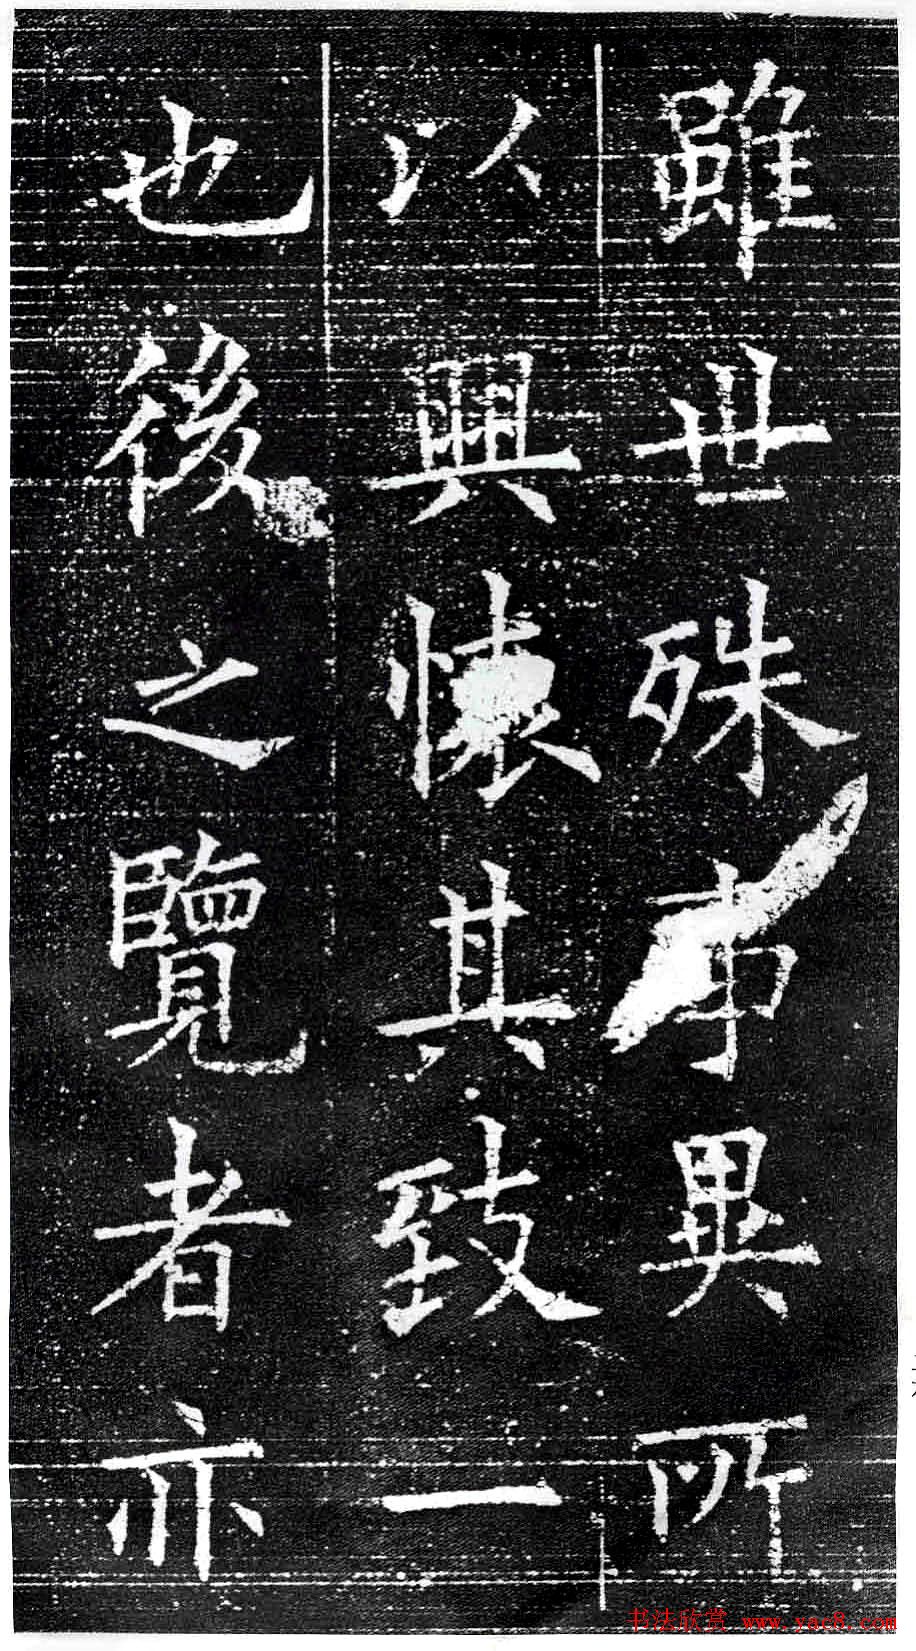 雖世殊事異所
以興懷其致一
也後之覽者亦
书法欣赏 www.yac8.com